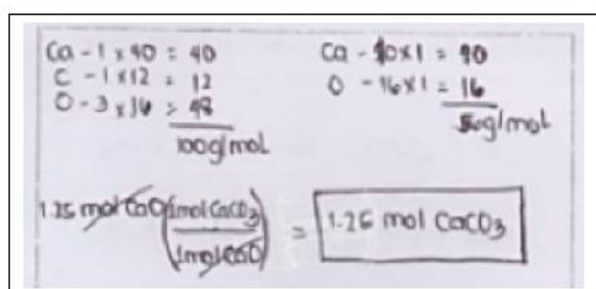 Ca - 1 x 40 = 40
C - 1 x 12 = 12
O - 3 x 16 = 48
100g/mol
Ca - 40x1 = 40
O - 16x1 = 16
56g/mol
1.25 mol CaO (1mol CaCO3 / 1mol CaO) = 1.25 mol CaCO3